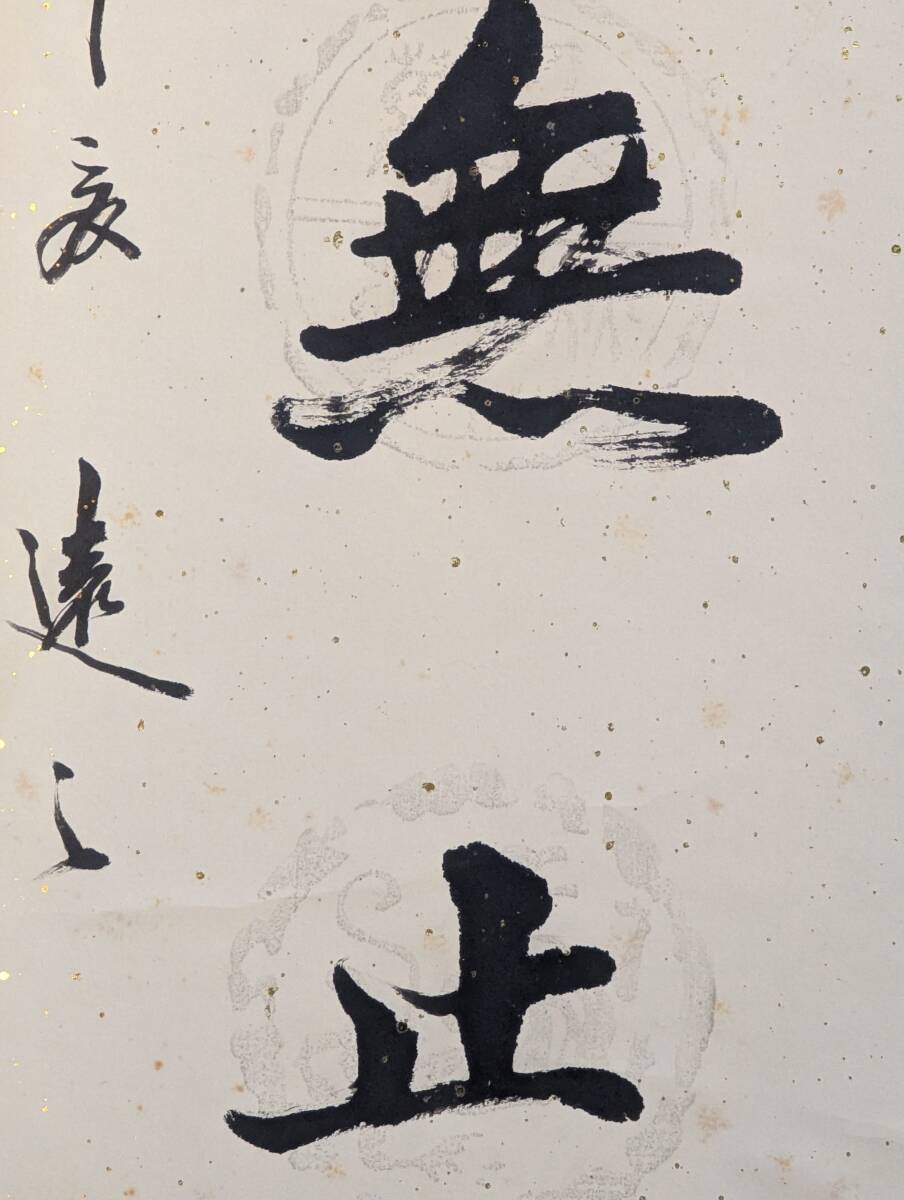 無止
亥遠之